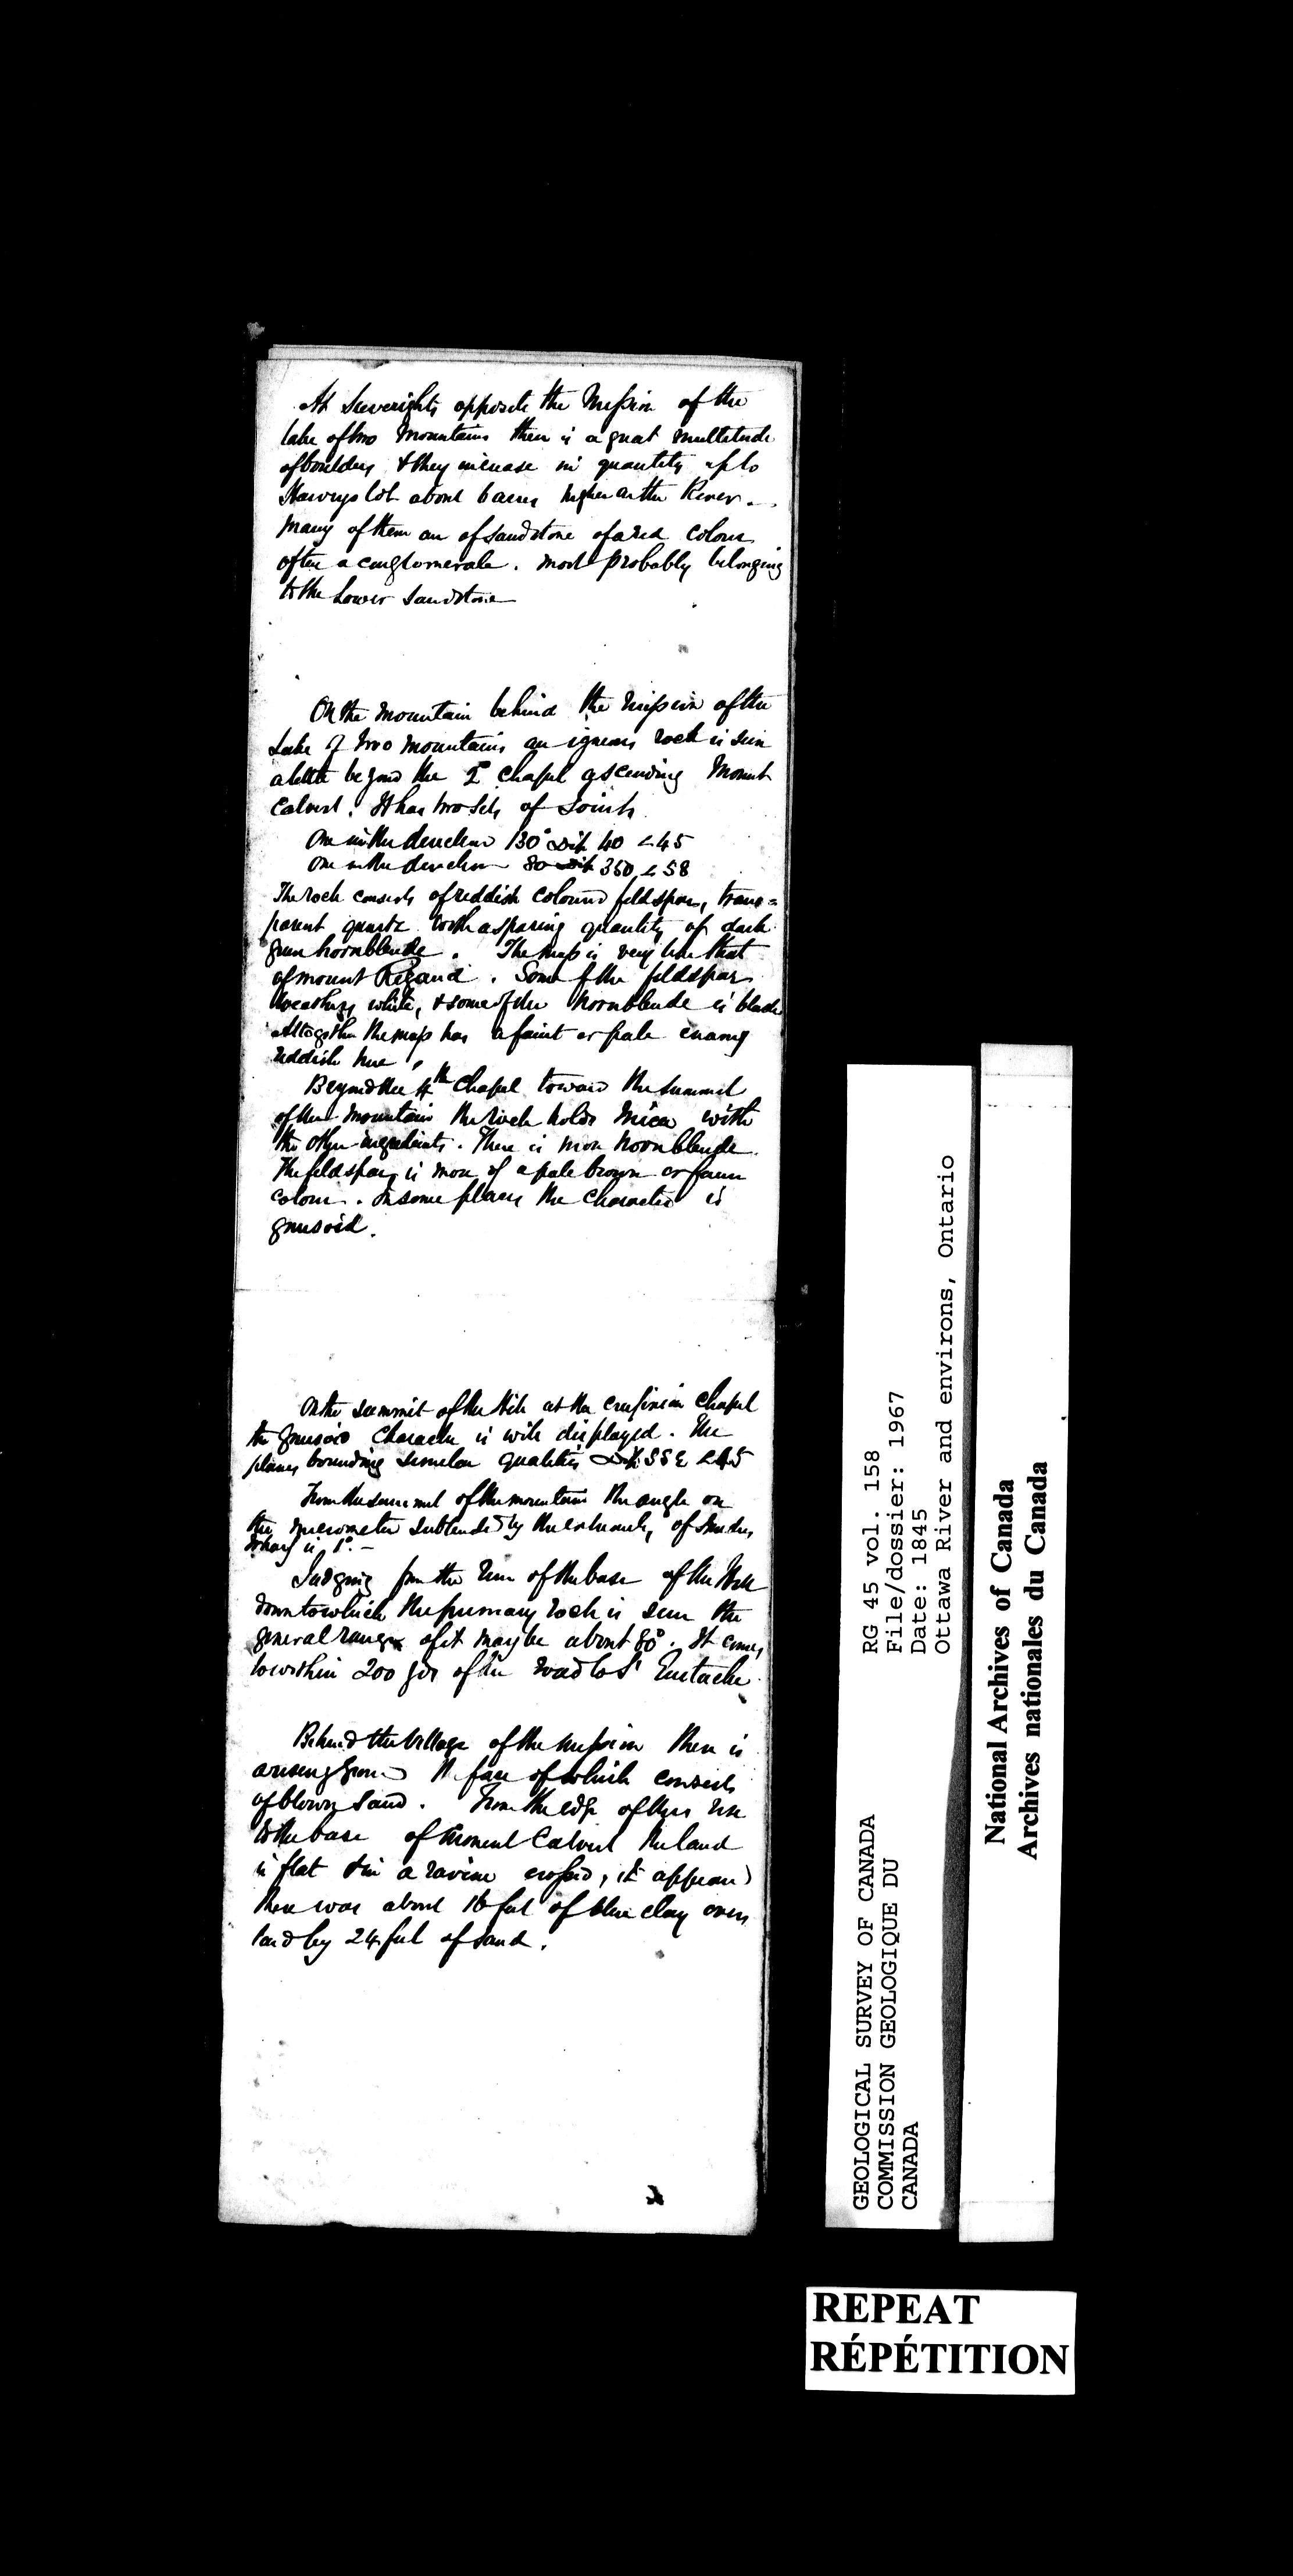 At Severights opposite the Mission of the
lake of two Mountains there is a great multitude
of boulders & they increase in quantity up to
lot about 6 acres higher on the River.
Many of them are of sandstone of a red colour
often a conglomerate. most probably belonging
to the Lower Sandstone
On the mountain behind the Mission of the
Lake of two Mountains an igneous rock is seen
a little beyond the 2d chapel ascending Mount
Calvert. It has two sets of Joints
One in the direction 130° Dip 40 < 45
One in the direction 80 Dip 350 < 58
The rock consists of reddish coloured feldspar, trans=
parent quartz with a sparing quantity of dark
green hornblende. The mass is very like that
of mount Rigaud. Some of the feldspar
weathers white, & some of the hornblende is black
Altogether the mass has a faint or pale
reddish hue.
Beyond the 4th Chapel toward the summit
of the mountain the rock holds mica with
the other ingredients. There is more hornblende.
The feldspar is more of a pale brown or fawn
colour. In some places the character is
gneisoid.
On the summit of the Hill at the crucifixion Chapel
the gneisoid character is well displayed. The
planes bounding similar qualities Dip SSE < 45
From the summit of the mountain the angle on
the micrometer subtended by the extremity of
wharf is 1°. –
Judging from the run of the base of the Hill
down to which the primary rock is seen the
general range of it may be about 80°. It comes
to within 200 yds of the road to St Eustache
Behind the village of the mission there is
a rising ground the face of which consists
of blown sand. From the edge of this rise
to the base of mount Calvert the land
is flat & in a ravine crossed, it appeared
there was about 16 feet of blue clay over
laid by 24 feet of sand.
GEOLOGICAL SURVEY OF CANADA
COMMISSION GEOLOGIQUE DU
CANADA
RG 45 vol. 158
File/dossier: 1967
Date: 1845
Ottawa River and environs, Ontario
National Archives of Canada
Archives nationales du Canada
REPEAT
RÉPÉTITION